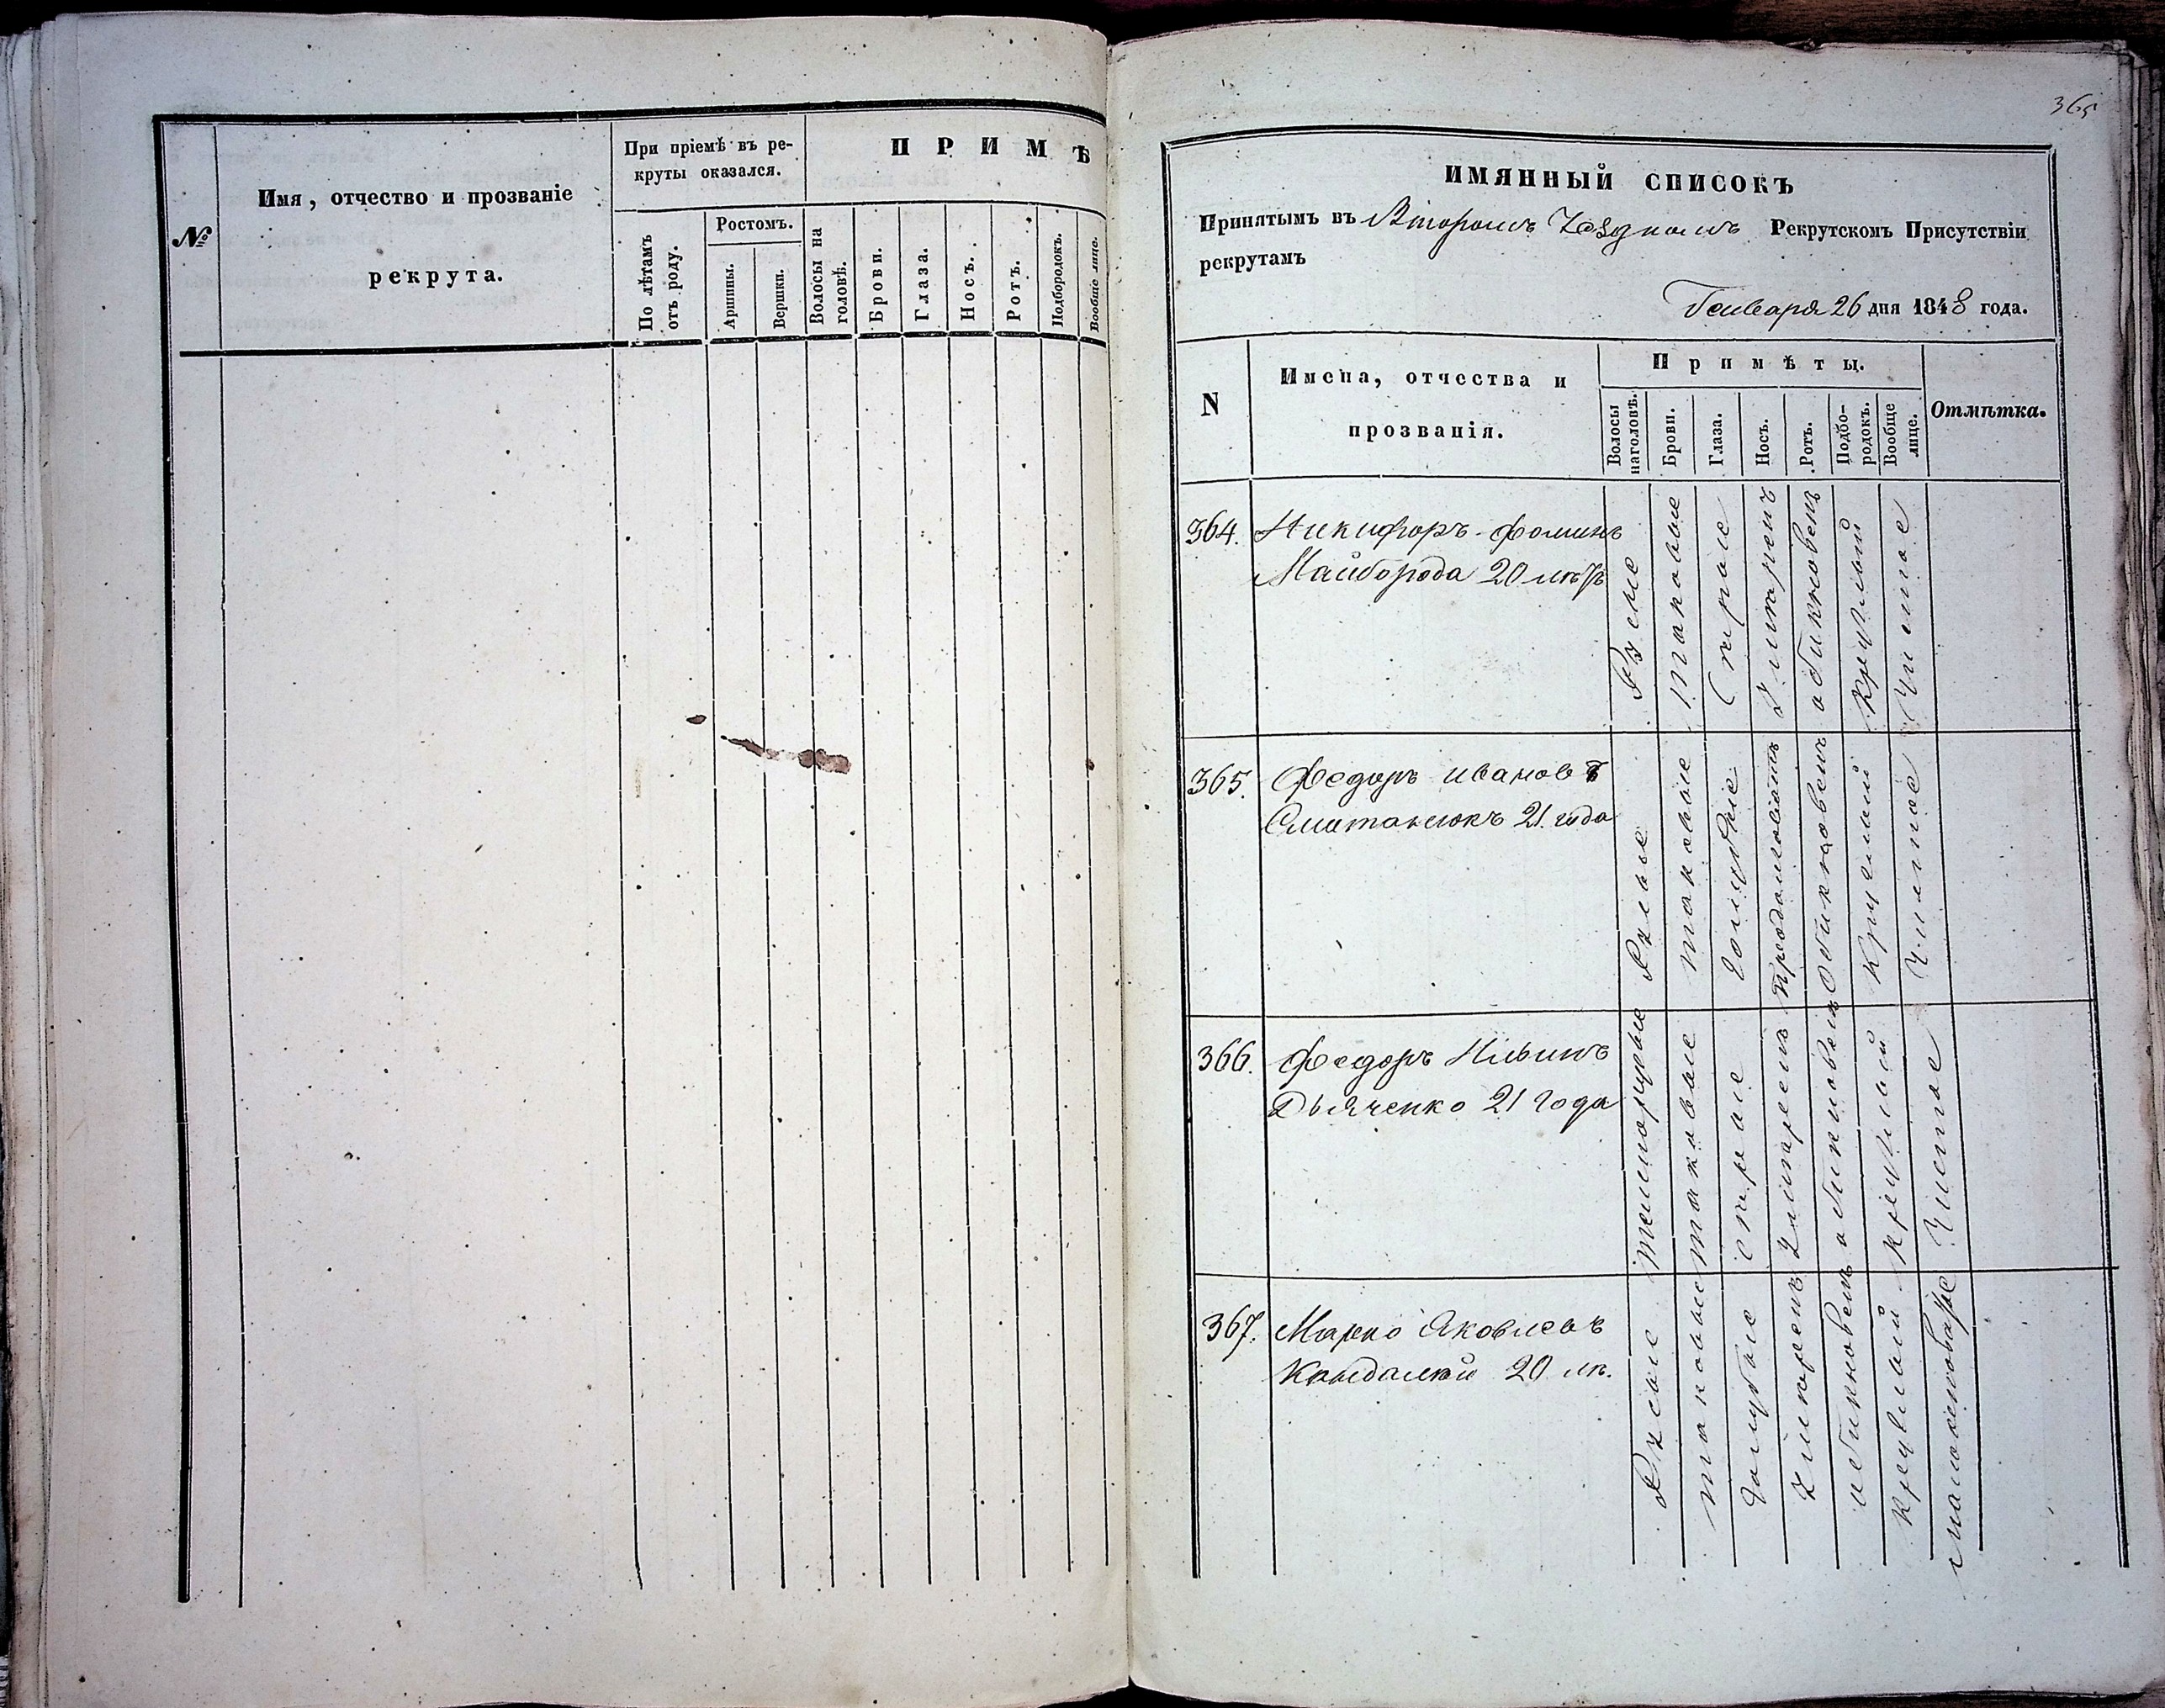 №
Имя, отчество и прозваніе
рекрута.
При пріемѣ въ ре-
круты оказался.
По лѣтамъ
отъ роду.
Ростомъ.
Аршины.
Вершки.
ПРИМѢ
Волосы на
головѣ.
Брови.
Глаза.
Носъ.
Ротъ.
Подбородокъ.
Вообще лице.
365
ИМЯННЫЙ СПИСОКЪ
Принятымъ въ Второмъ Уѣздномъ Рекрутскомъ Присутствіи
рекрутамъ
Генваря 26 дня 1848 года.
N
Имена, отчества и
прозванія.
Примѣты.
Волосы
наголовѣ.
Брови.
Глаза.
Носъ.
Ротъ.
Подбо-
родокъ.
Вообще
лице.
Отмѣтка.
364. Никифоръ Фоминъ
Майборода 20 лѣтъ
Русые
таковые
сѣрые
умѣренъ
обикновенъ
круглый
чистое
365. Федоръ Ивановъ
Сметанюкъ 21 года
Русые
таковые
голубые
продолговатъ
Обикновенъ
круглый
чистое
366. Федоръ Ильинъ
Дьяченко 21 года
темнорусые
таковые
сѣрые
умѣренъ
обикновенъ
круглый
Чистое
367. Марко Яковлевъ
20 лѣ.
Русые
таковые
голубые
умѣренъ
обикновенъ
круглый